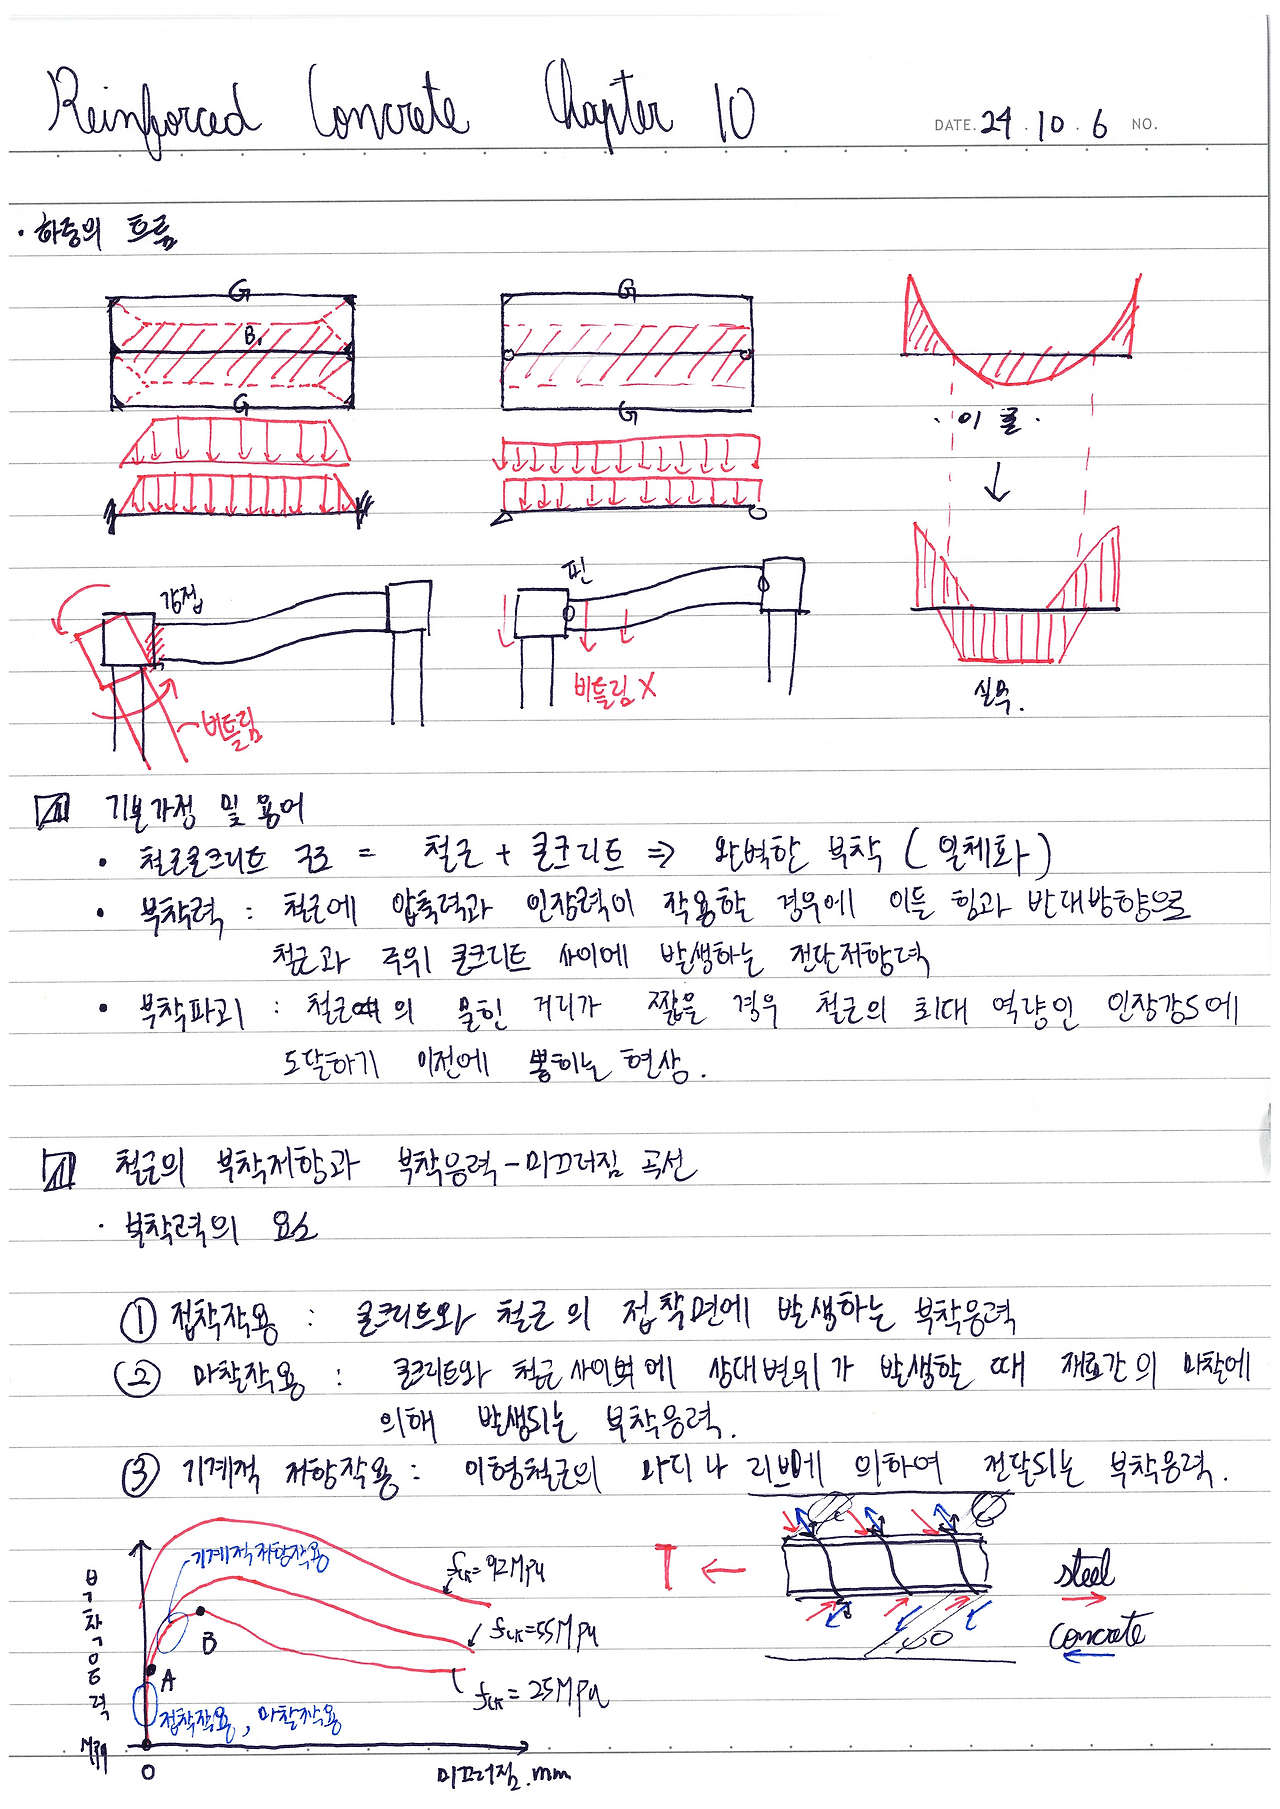 Reinforced Concrete Chapter 10
DATE. 24 . 10 . 6 NO.
· 하중의 흐름
G
B₁
G
G
G
이론
강접
핀
비틀림
비틀림 X
실무.
기본가정 및 용어
• 철근콘크리트 구조 = 철근 + 콘크리트 ⇒ 완벽한 부착 (일체화)
• 부착력 : 철근에 압축력과 인장력이 작용할 경우에 이들 힘과 반대방향으로
철근과 주위 콘크리트 사이에 발생하는 전단저항력
• 부착파괴 : 철근의 묻힌 거리가 짧을 경우 철근의 최대 역량인 인장강도에
도달하기 이전에 뽑히는 현상.
철근의 부착저항과 부착응력-미끄러짐 곡선
· 부착력의 요소
① 접착작용 : 콘크리트와 철근의 접착면에 발생하는 부착응력
② 마찰작용 : 콘크리트와 철근 사이에 상대변위가 발생할 때 재료간의 마찰에
의해 발생되는 부착응력.
③ 기계적 저항작용 : 이형철근의 마디나 리브에 의하여 전달되는 부착응력.
기계적저항작용
fck=92MPa
T
steel
부착응력
B
fck=55MPa
concrete
A
fck=25MPa
접착작용, 마찰작용
MPa
0
미끄러짐.mm